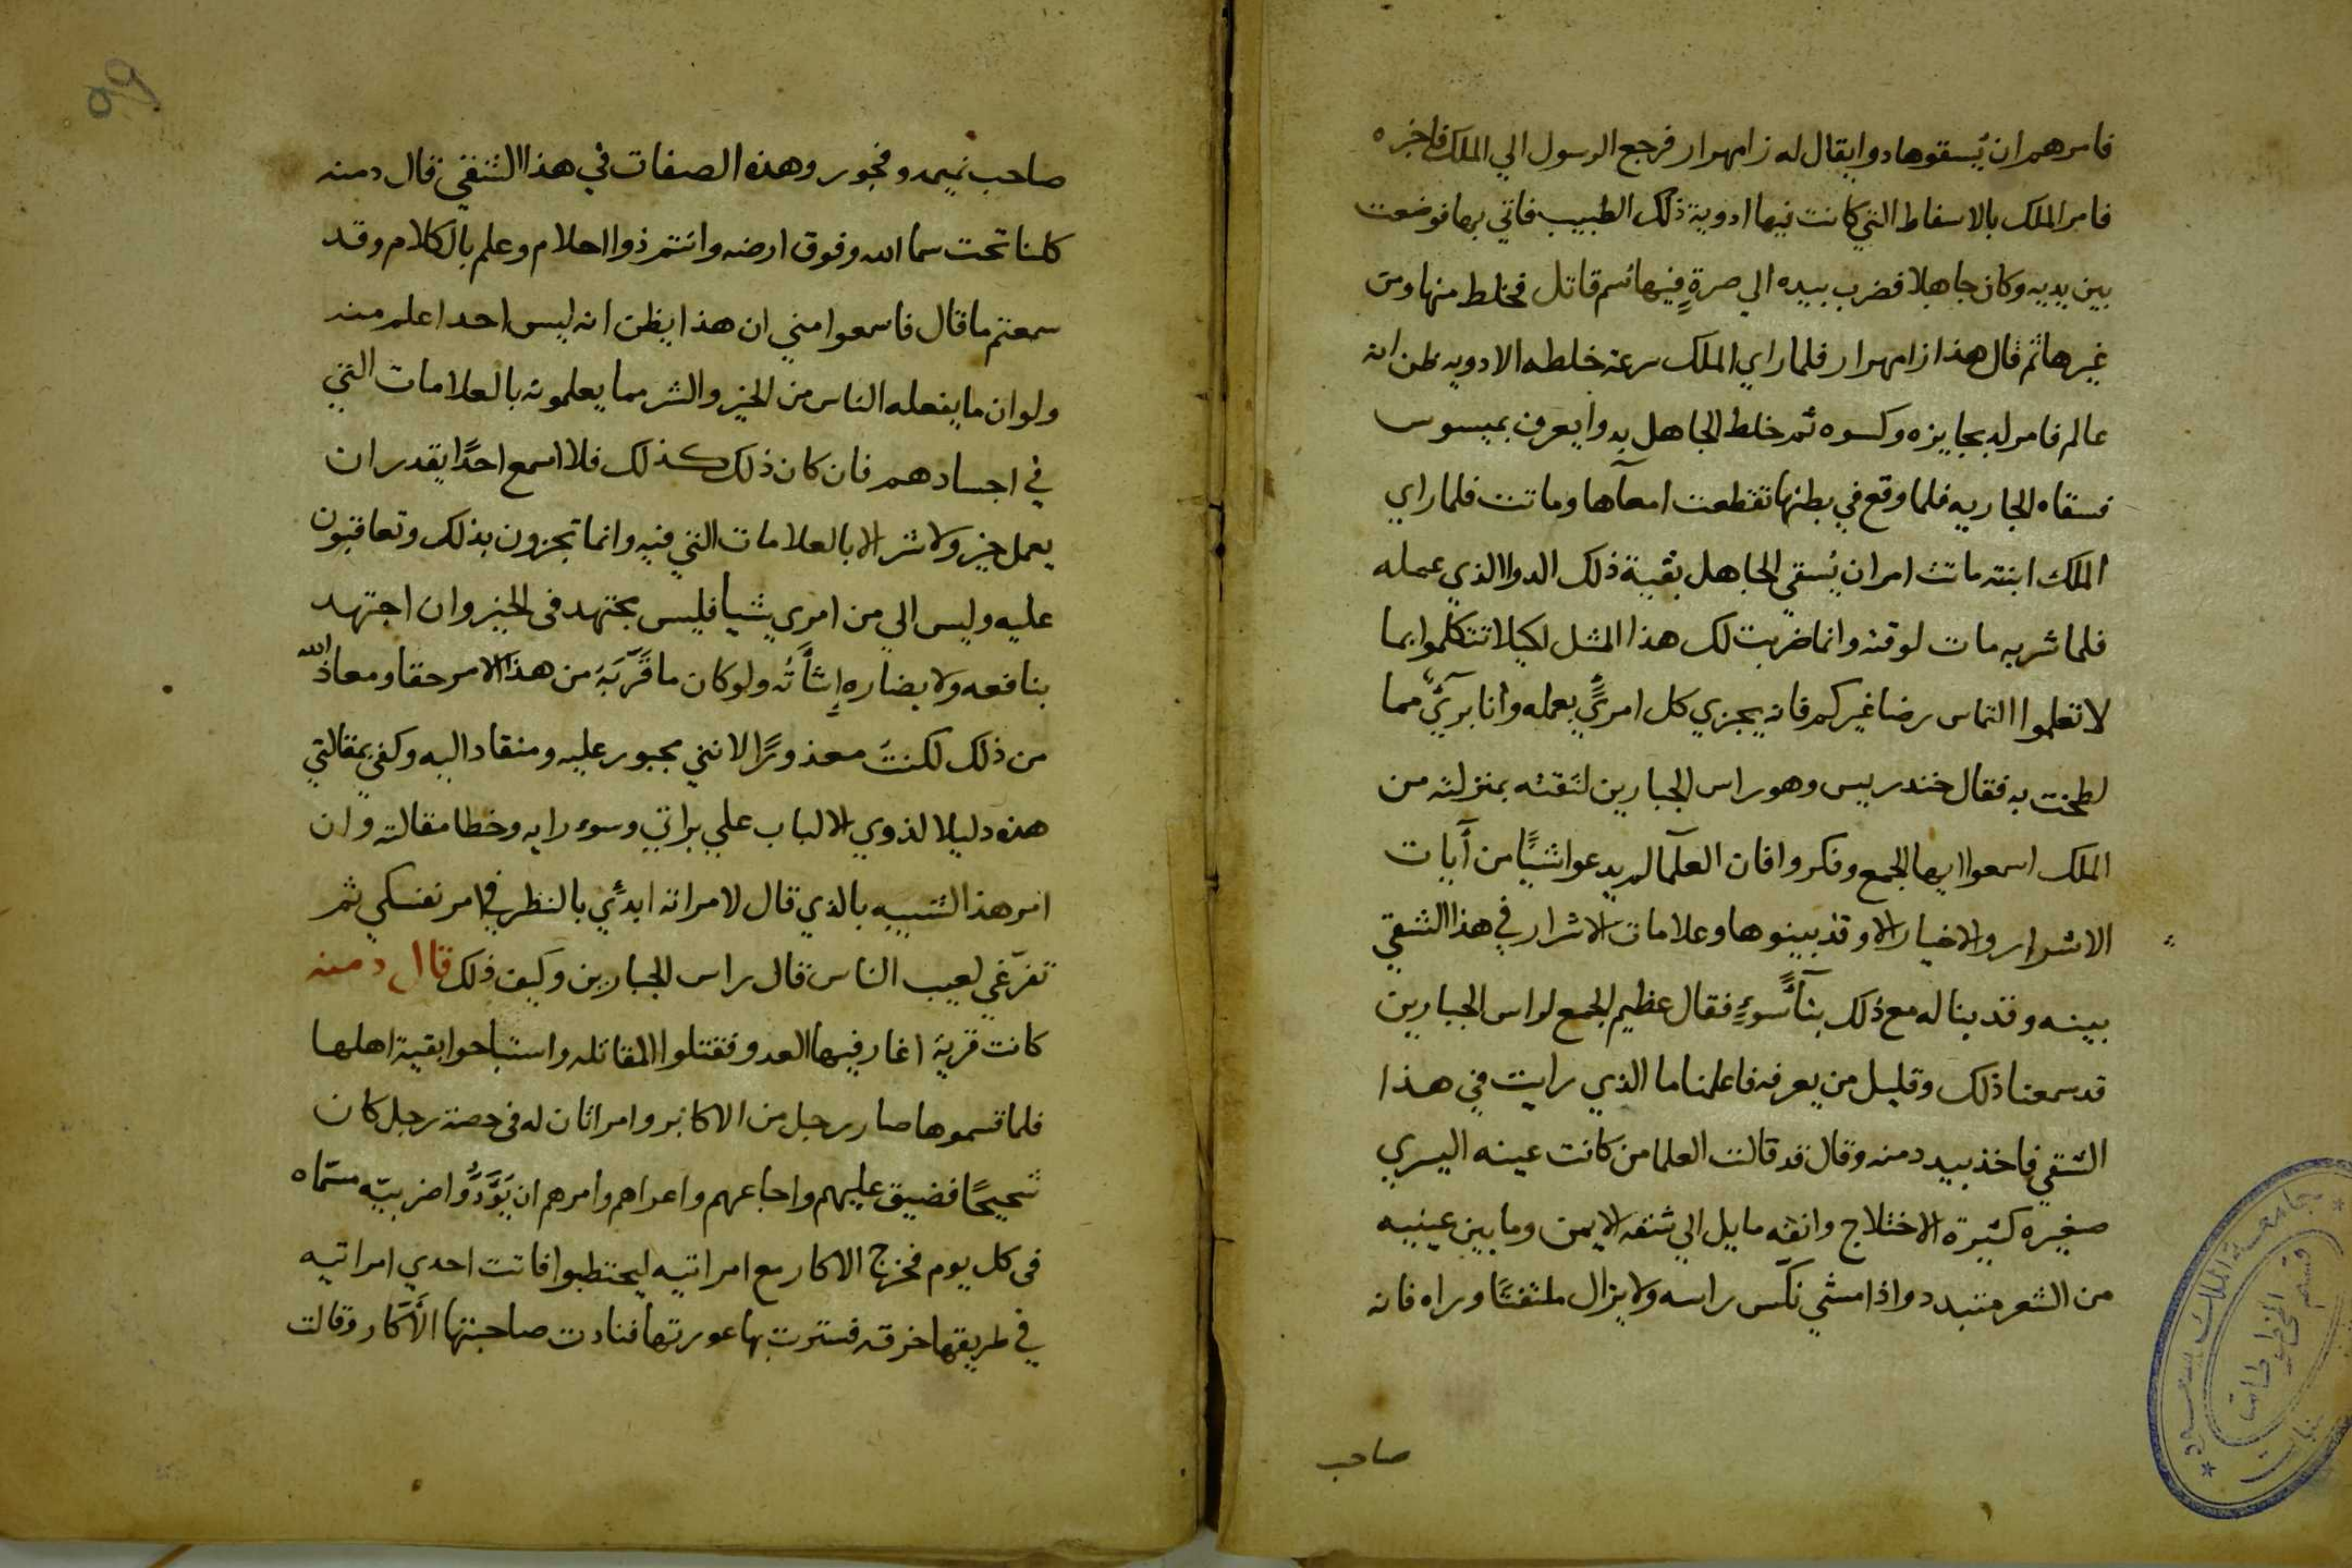 فامرهم ان يُسقوها دوا يقال له زامهرار فرجع الرسول الي الملك فاخبره
فامر الملك بالاسفاط التي كانت فيها ادوية ذلك الطبيب فاتي بها فوضعت
بين يديه وكان جاهلا فضرب بيده الي صرةٍ فيها سم قاتل فخلط منها ومن
غيرها ثم قال هذا زامهرار فلما راي الملك سرعة خلطه الادويه ظن انه
عالم فامر له بجايزه وكسوه ثم خلط الجاهل به دوا يعرف بميسوس
فسقاه الجاريه فلما وقع في بطنها تقطعت امعآها وماتت فلما راي
الملك ابنته ماتت امر ان يُسقي الجاهل بقية ذلك الدوا الذي عمله
فلما شربه مات لوقته وانما ضربت لك هذا المثل لكيلا تتكلموا بما
لا تعلموا التماس رضا غيركم فانه يجزي كل امرئٍ بعمله وانا برآئٌ مما
لطخت به فقال خندريس وهو راس الجبارين لثقته بمنزلته من
الملك اسمعوا ايها الجمع وفكروا فان العلمآ لم يدعوا شيًا من آيات
الاشرار والاخيار الا وقد بينوها وعلامات الاشرار في هذا الشقي
بينه وقد بنا له مع ذلك بنآءً سوءٍ فقال عظيم الجمع لراس الجبارين
قد سمعنا ذلك وقليل من يعرفه فاعلمنا ما الذي رايت في هذا
الشقي فاخذ بيد دمنه وقال قد قالت العلما من كانت عينه اليسري
صغيره كثيرة الاختلاج وانفه مايل الي شقه الايمن وما بين عينيه
من الشعر متبدد واذا مشي نكّس راسه ولا يزال ملتفتًا وراه فانه
صاحب
جامعة الملك سعود
قسم المخطوطات
٥٩
صاحب نميمه وفجور وهذه الصفات في هذا الشقي قال دمنه
كلنا تحت سما الله وفوق ارضه وانتم ذوا احلام وعلم بالكلام وقد
سمعتم ما قال فاسمعوا مني ان هذا يظن انه ليس احدا علم منه
ولو ان ما يفعله الناس من الخير والشر مما يعلمونه بالعلامات التي
في اجسادهم فان كان ذلك كذلك فلا اسمع احدًا يقدر ان
يعمل خير ولا شر الا بالعلامات التي فيه وانما تجزون بذلك وتعاقبون
عليه وليس الي من امري شيا فليس مجتهد في الخير وان اجتهد
بنافعه ولا بضاره إِسْأتُه ولو كان ما قَرّبَهُ من هذا الامر حقا ومعاذ الله
من ذلك لكنتُ معذورًا لانني مجبور عليه ومنقاد اليه وكفي بمقالتي
هذه دليلا لذوي الالباب علي براتي وسوء رايه وخطا مقالته وان
امر هذا الشبيه بالذي قال لامراته ابدئي بالنظر في امر نفسكي ثم
تفرّغي لعيب الناس قال راس الجبارين وكيف ذلك قال دمنه
كانت قرية اغار فيها العدو فقتلوا المقاتله واستباحوا بقية اهلها
فلما قسموها صار رجل من الاكابر وامراتان له في حصة رجل كان
شحيحًا فضيق عليهم واجاعهم واعراهم وامرهم ان يَوَّدُّوا ضريبيّه مسمّاه
في كل يوم فخرج الاكار مع امراتيه ليحتطبوا فاتت احدي امراتيه
في طريقها خرقه فسترت بها عورتها فنادت صاحبتها الأكّار وقالت